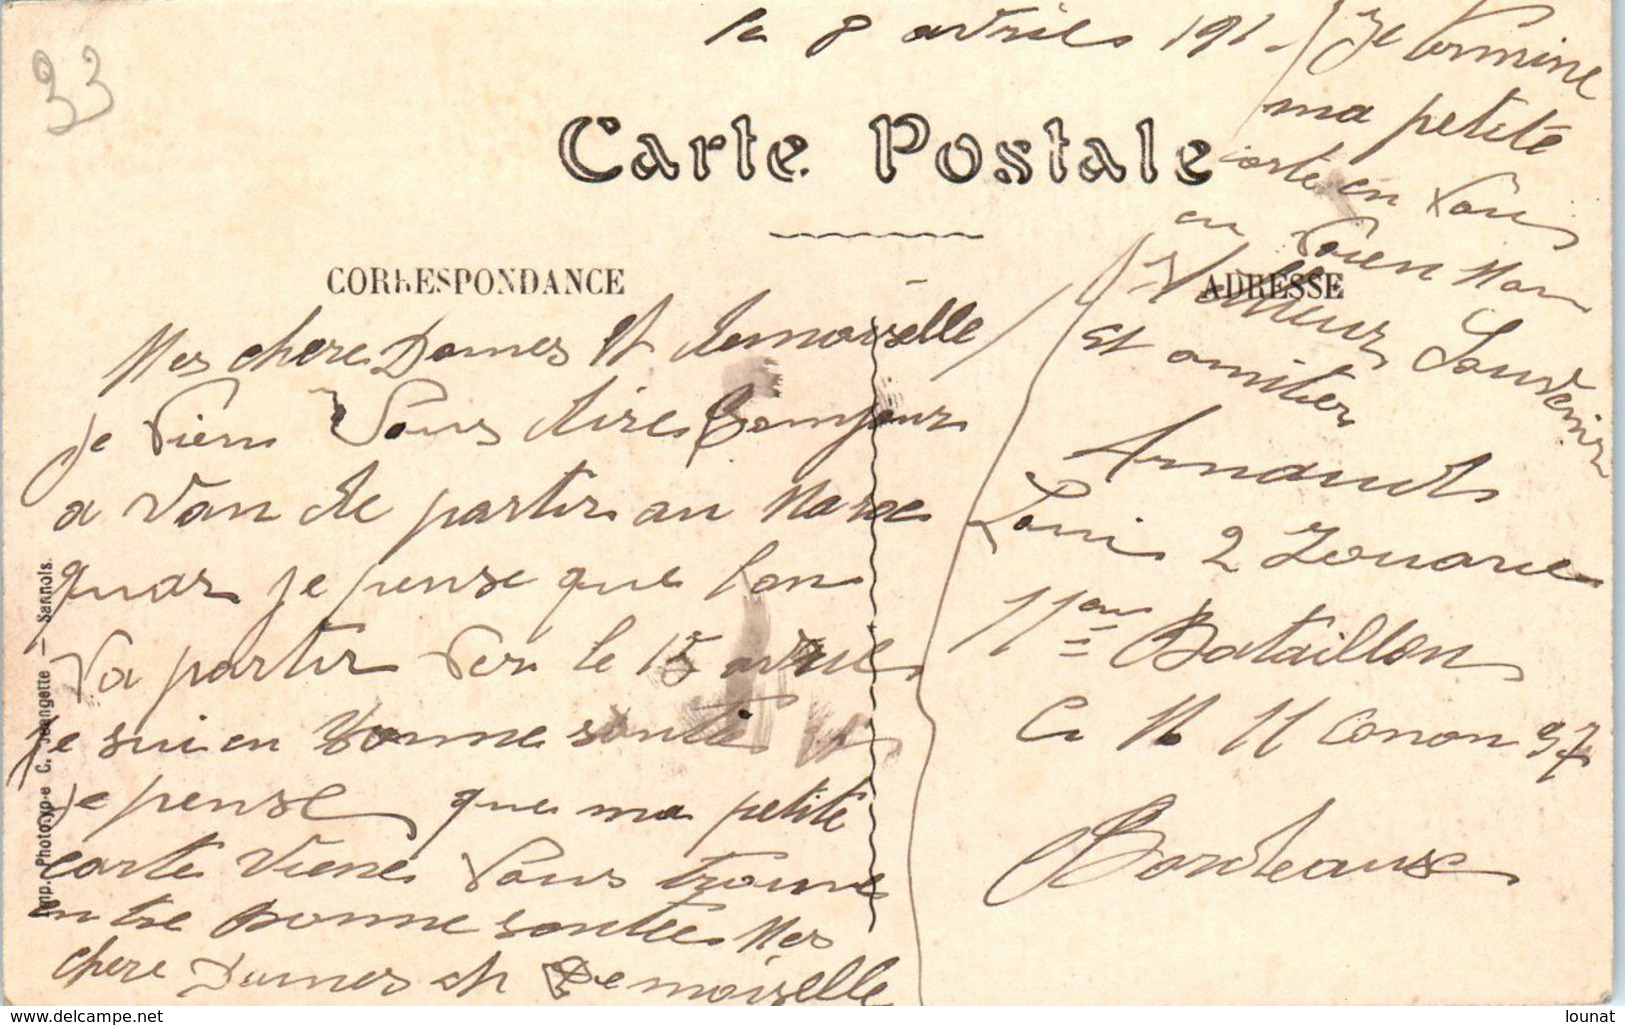 33
le 8 avril 191
Carte Postale
CORRESPONDANCE
ADRESSE
Mes chere Dames et demoiselle
je vien vous dire bonjour
a van de partir au Maroc
quar je pense que lon
va partir ver le 15 avril
je sui en bonne santé
je pense que ma petite
carte viene vous trouve
en tre bonne santée Mes
chere Dames et Demoiselle
Je termine
ma petite
carte en vou
en voien mon
Meilleur Souvenir
et amitier
Arnaud
Loui 2 Zouave
11eme Bataillon
Ci N 11 Canon 37
Bordeaux
Imp. Phototypie C. Jeangette — Sannois.
www.delcampe.net
lounat